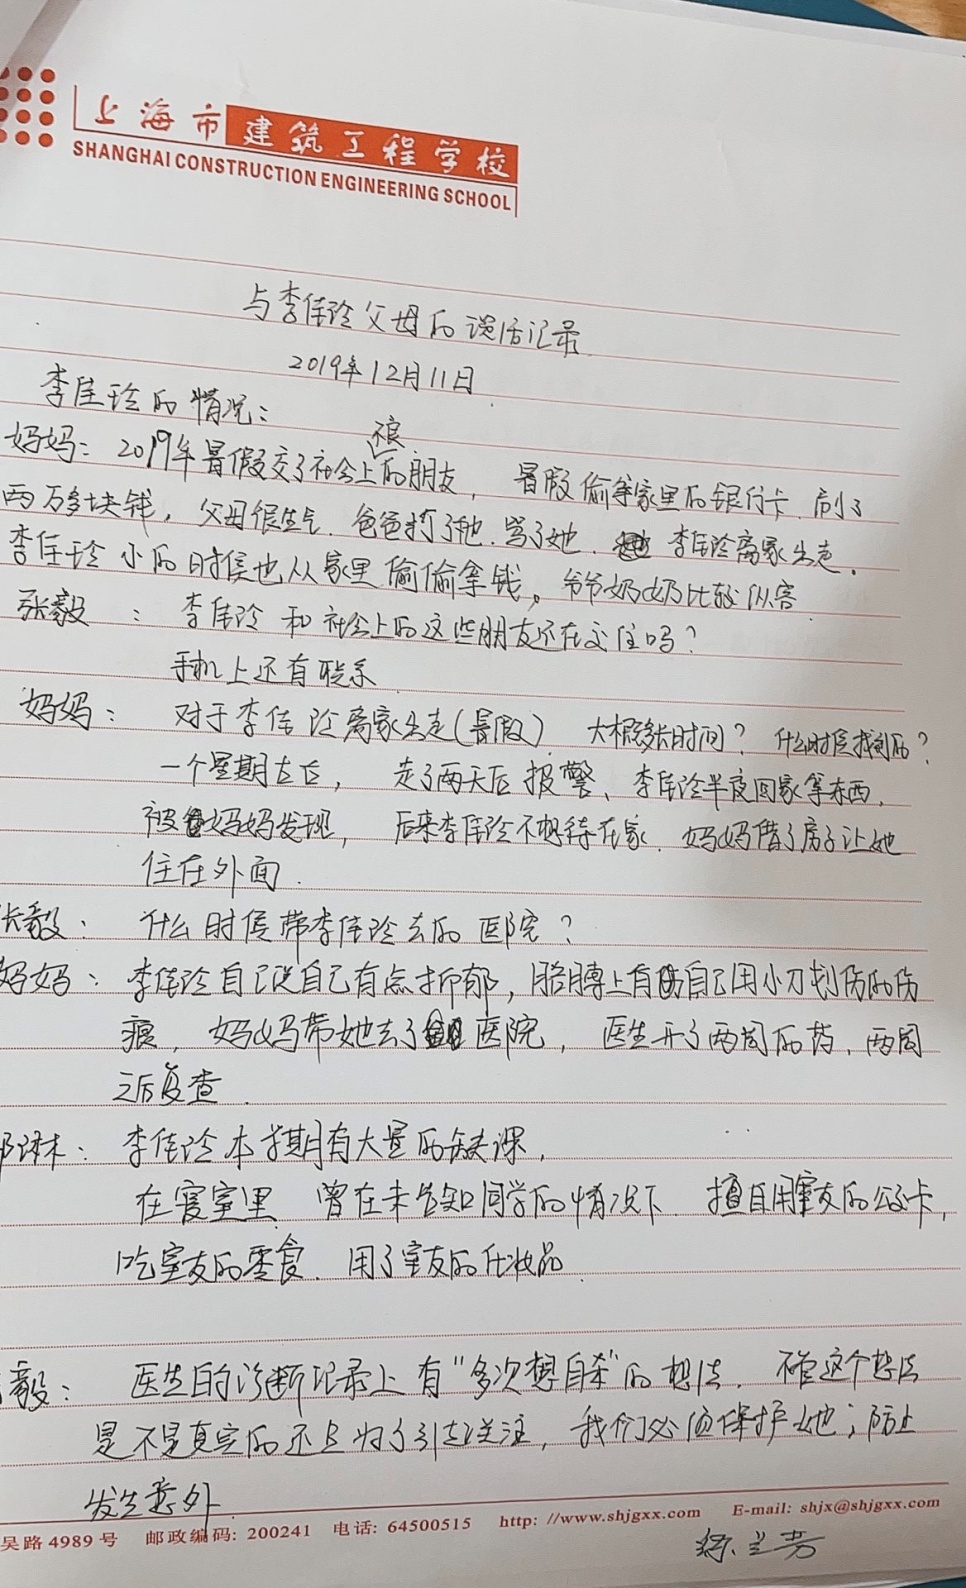 上海市建筑工程学校
SHANGHAI CONSTRUCTION ENGINEERING SCHOOL
与李佳玲父母的谈话记录
2019年12月11日
李佳玲的情况:
妈妈: 2019年暑假交了社会上的朋友, 暑假偷拿家里的银行卡 刷了
两万多块钱, 父母很生气. 爸爸打了她. 骂了她. 李佳玲离家出走.
李佳玲小的时候也从家里偷偷拿钱。爷爷奶奶比较纵容
张毅: 李佳玲和社会上的这些朋友还在交往吗?
手机上还有联系
妈妈: 对于李佳玲离家出走(暑假) 大概多长时间? 什么时候找到的?
一个星期左右, 走了两天后报警、李佳玲半夜回家拿东西,
被妈妈发现, 后来李佳玲不想待在家. 妈妈借了房子让她
住在外面.
张毅: 什么时候带李佳玲去的医院?
妈妈: 李佳玲自己说自己有点抑郁, 胳膊上有自己用小刀划伤的伤
痕, 妈妈带她去了医院, 医生开了两周的药, 两周
之后复查.
琳: 李佳玲本学期有大量的缺课,
在寝室里 曾在未告知同学的情况下 擅自用室友的公交卡,
吃室友的零食. 用了室友的化妆品
毅: 医生的诊断记录上有"多次想自杀"的想法. 不管这个想法
是不是真实的还是为了引起关注, 我们必须保护她; 防止
发生意外
吴路4989号 邮政编码: 200241 电话: 64500515 http: //www.shjgxx.com E-mail: shjx@shjgxx.com